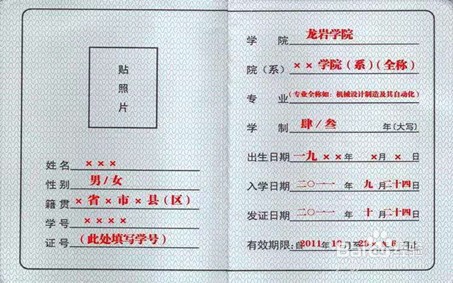 贴
照
片
姓名 × × ×
性别 男/女
籍贯 × 省 × 市 × 县（区）
学号 × × × ×
证号 （此处填写学号）
学 院 龙岩学院
院（系） × × 学院（系）（全称）
专 业 （专业全称如：机械设计制造及其自动化）
学 制 肆/叁 年（大写）
出生日期 一九 × × 年 × 月 × 日
入学日期 二〇一一 年 九 月 二十四 日
发证日期 二〇一一 年 十 月 二十四 日
有效期限：自2011年10月至
Baidu